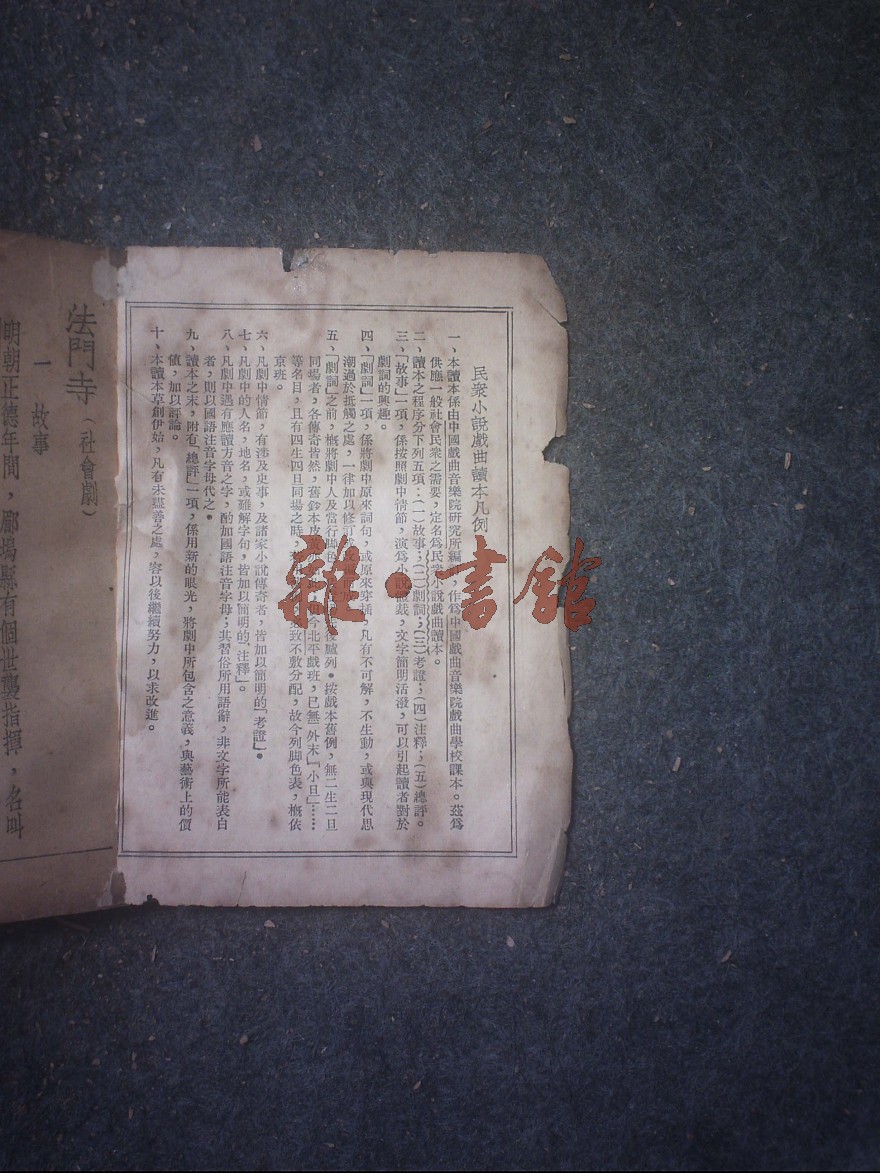 民衆小說戲曲讀本凡例
一、本讀本係由中國戲曲音樂院研究所編，作爲中國戲曲音樂院戲曲學校課本。茲爲
供應一般社會民衆之需要，定名爲民衆小說戲曲讀本。
二、讀本之程序分下列五項：（一）故事；（二）劇詞；（三）考證；（四）注釋；（五）總評。
三、「故事」一項，係按照劇中情節，演爲小說體裁，文字簡明活潑，可以引起讀者對於
劇詞的興趣。
四、「劇詞」一項，係將劇中原來詞句，或原來穿插，凡有不可解，不生動，或與現代思
潮過於抵觸之處，一律加以修訂
五、「劇詞」之前，槪將劇中人及當行脚色，後臚列。按戲本舊例，無二生二旦
同場者，各傳奇皆然，舊鈔本皮黃今北平戲班，已無「外末」「小旦」……
等名目，且有四生四旦同場之時，致不敷分配，故今列脚色表，槪依
京班。
六、凡劇中情節，有涉及史事，及諸家小說傳奇者，皆加以簡明的「考證」。
七、凡劇中的人名，地名，或難解字句，皆加以簡明的「注釋」。
八、凡劇中遇有應讀方音之字，酌加國語注音字母；其習俗所用語辭，非文字所能表白
者，則以國語注音字母代之。
九、讀本之末，附有「總評」一項，係用新的眼光，將劇中所包含之意義，與藝術上的價
値，加以評論。
十、本讀本草創伊始，凡有未盡善之處，容以後繼續努力，以求改進。
法門寺（社會劇）
一 故事
明朝正德年間，郿塢縣有個世襲指揮，名叫
雜·書館